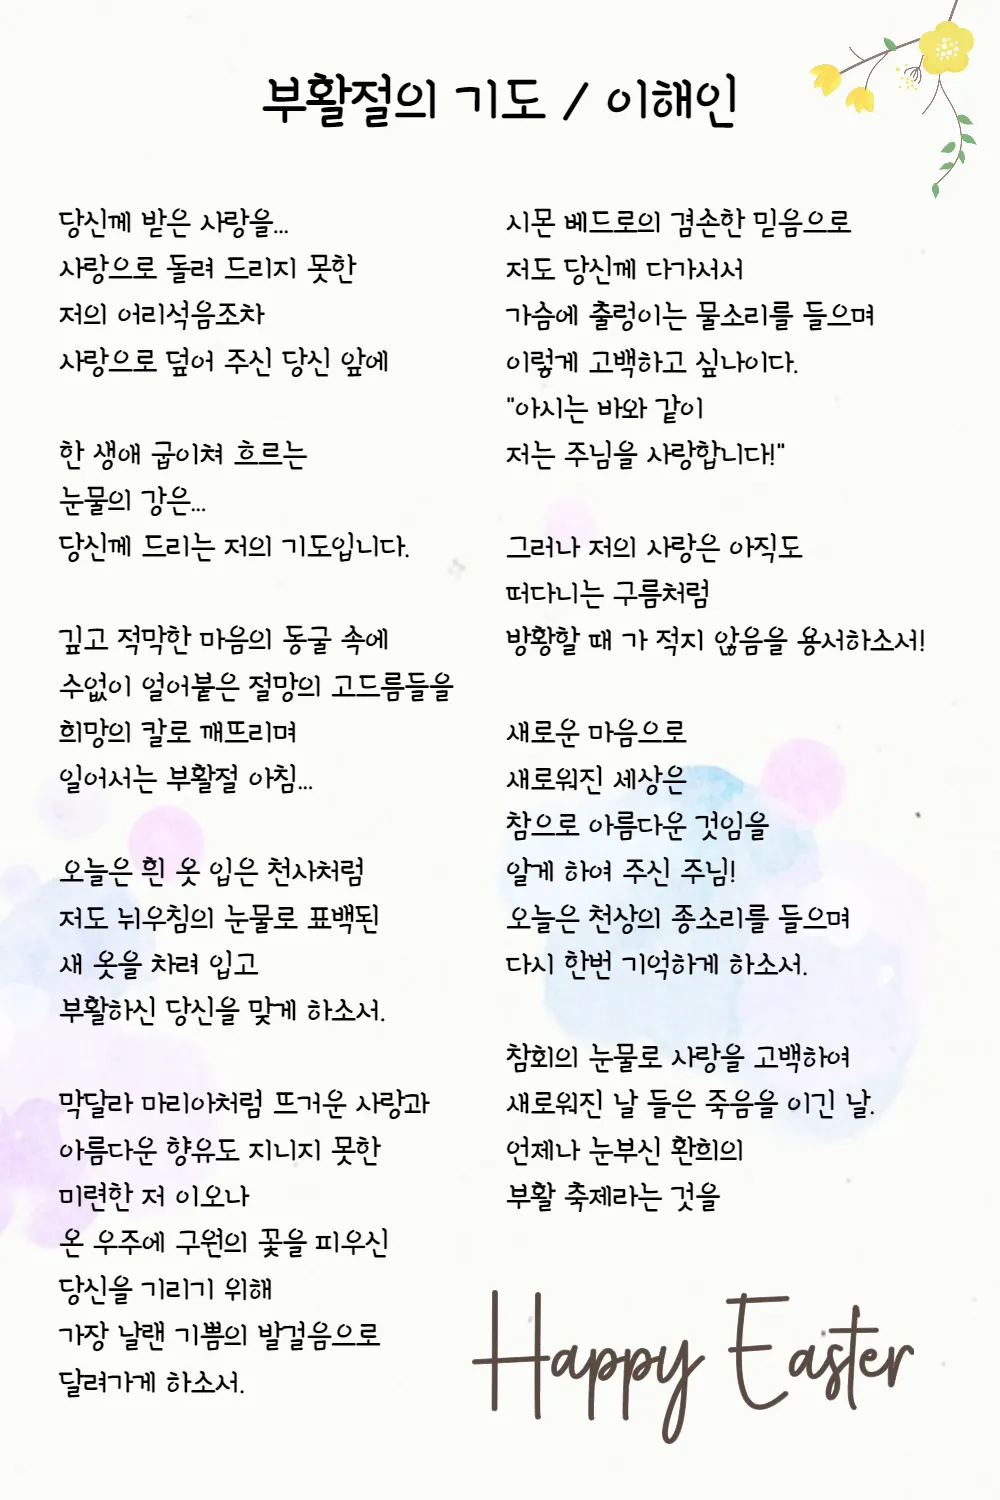 부활절의 기도 / 이해인
당신께 받은 사랑을...
사랑으로 돌려 드리지 못한
저의 어리석음조차
사랑으로 덮어 주신 당신 앞에
한 생애 굽이쳐 흐르는
눈물의 강은...
당신께 드리는 저의 기도입니다.
깊고 적막한 마음의 동굴 속에
수없이 얼어붙은 절망의 고드름들을
희망의 칼로 깨뜨리며
일어서는 부활절 아침...
오늘은 흰 옷 입은 천사처럼
저도 뉘우침의 눈물로 표백된
새 옷을 차려 입고
부활하신 당신을 맞게 하소서.
막달라 마리아처럼 뜨거운 사랑과
아름다운 향유도 지니지 못한
미련한 저 이오나
온 우주에 구원의 꽃을 피우신
당신을 기리기 위해
가장 날랜 기쁨의 발걸음으로
달려가게 하소서.
시몬 베드로의 겸손한 믿음으로
저도 당신께 다가서서
가슴에 출렁이는 물소리를 들으며
이렇게 고백하고 싶나이다.
"아시는 바와 같이
저는 주님을 사랑합니다!"
그러나 저의 사랑은 아직도
떠다니는 구름처럼
방황할 때 가 적지 않음을 용서하소서!
새로운 마음으로
새로워진 세상은
참으로 아름다운 것임을
알게 하여 주신 주님!
오늘은 천상의 종소리를 들으며
다시 한번 기억하게 하소서.
참회의 눈물로 사랑을 고백하여
새로워진 날 들은 죽음을 이긴 날.
언제나 눈부신 환희의
부활 축제라는 것을
Happy Easter